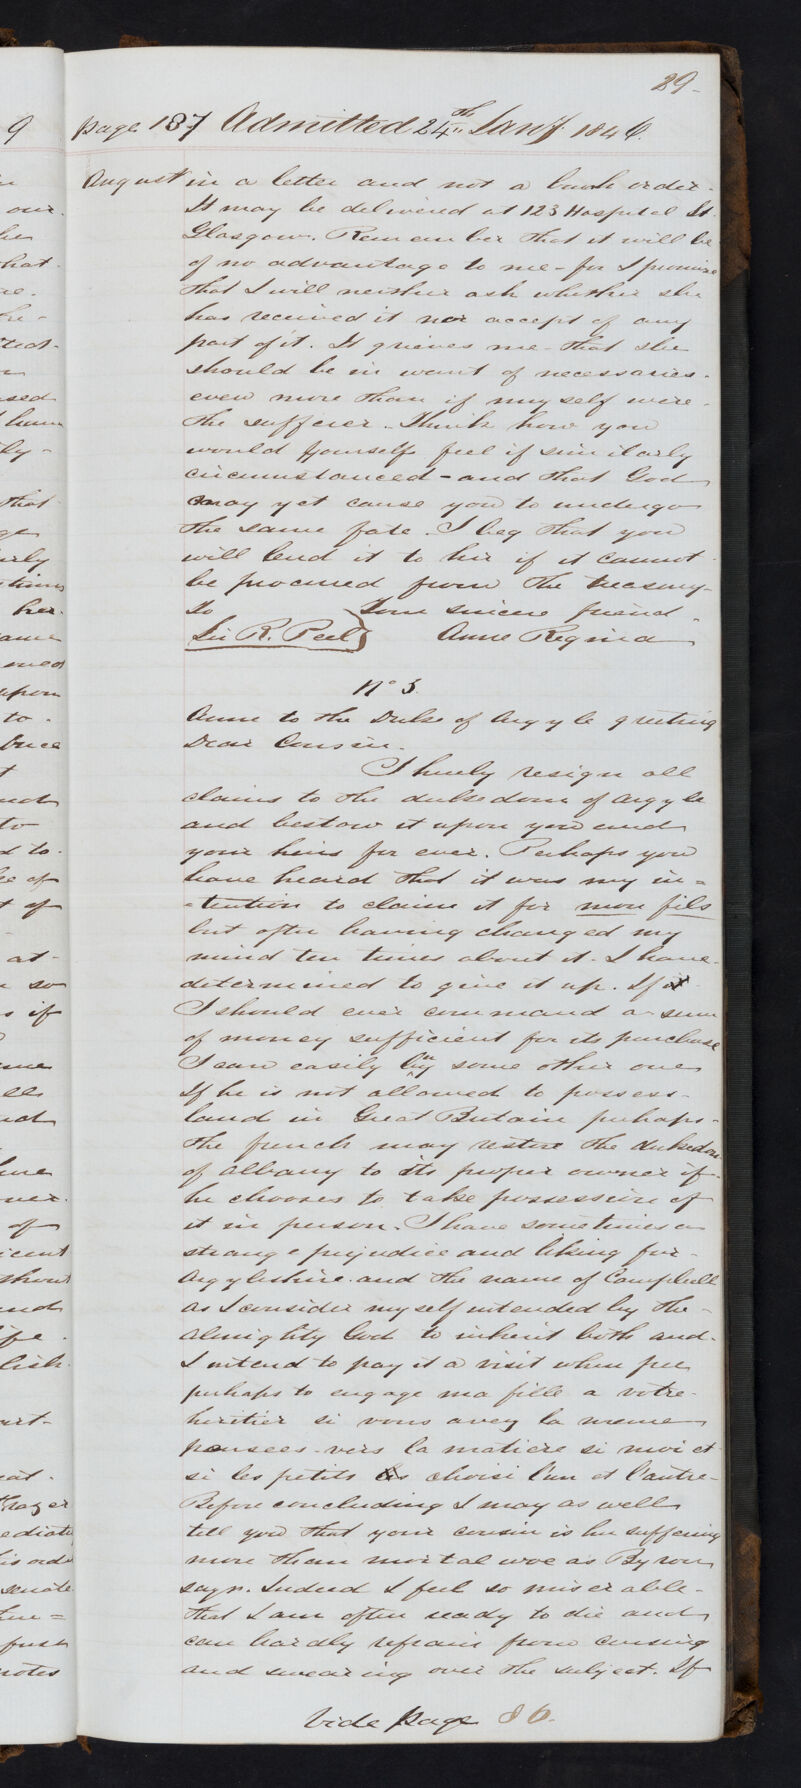 29.
page 137 Admitted 24th Jany 1846.
August in a letter and not a bank order.
It may be delivered at 123 Hospital St.
Glasgow. Remember that it will be
of no advantage to me - for I promise
that I will neither ask whether she
has received it nor accept of any
part of it. It grieves me that she
should be in want of necessaries.
even more than if my self were
the sufferer. Think how you
would yourself feel if similarly
circumstanced - and that God
may yet cause you to undergo
the same fate. I beg that you
will lend it to her if it cannot
be procured from the treasury.
To Your sincere friend
Sir R. Peel } Anne Regina
No 3.
Anne to the Duke of Argyle greeting
Dear Cousin.
I hereby resign all
claims to the dukedom of Argyle
and bestow it upon you and
your heirs for ever. Perhaps you
have heard that it was my in=
=tention to claim it for mon fils
but after having changed my
mind ten times about it. I have
determined to give it up. If
I should ever command a sum
of money sufficient for its purchase
I can easily buy some other one
If he is not allowed to possess
land in Great Britain perhaps
the french may restore the dukedom
of albany to its proper owner if
he chooses to take possession of
it in person. I have sometimes a
strange prejudice and liking for
Argyleshire and the name of Campbell
as I consider myself intended by the
almighty God to inherit both and
I intend to pay it a visit when free
perhaps to engage ma fille a votre
heritier si vous avez la meme
pensees vers la matiere si moi et
si les petits choisi l'un et l'autre
Before concluding I may as well
tell you that your cousin is here suffering
more than mortal woe as Byron
says. Indeed I feel so miserable
that I am often ready to die and
can hardly refrain from cursing
and swearing over the subject. If
Vide page 86.